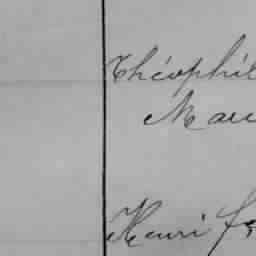 Théophil
Mari
Henri